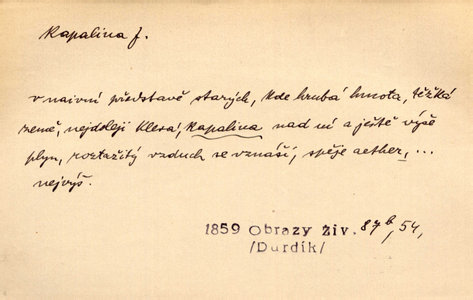 Kapalina f.
v naivní představě starých, kde hrubá hmota, těžká
země, nejdoleji klesá, kapalina nad ní a ještě výše
plyn, roztažitý vzduch se vznáší, spěje aether, ...
nejvýš.
1859 Obrazy živ. 87b, 54,
/Durdík/